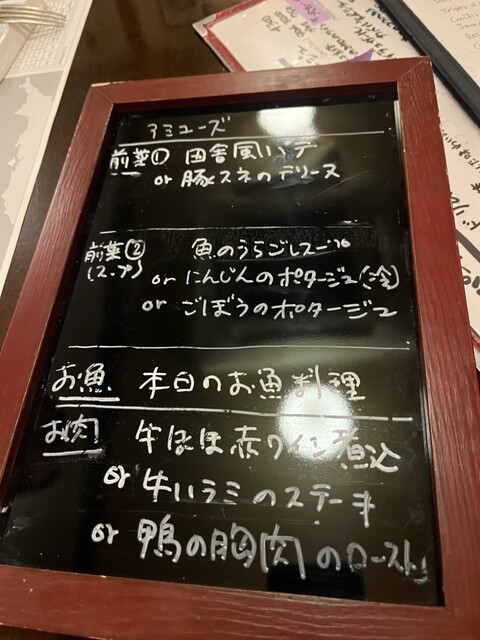 アミューズ
前菜① 田舎風パテ
or 豚スネのテリーヌ
前菜② 魚のうらごしスープ
(スープ) or にんじんのポタージュ(冷)
or ごぼうのポタージュ
お魚 本日のお魚料理
お肉 牛ほほ赤ワイン煮込
or 牛ハラミのステーキ
or 鴨の胸肉のロースト